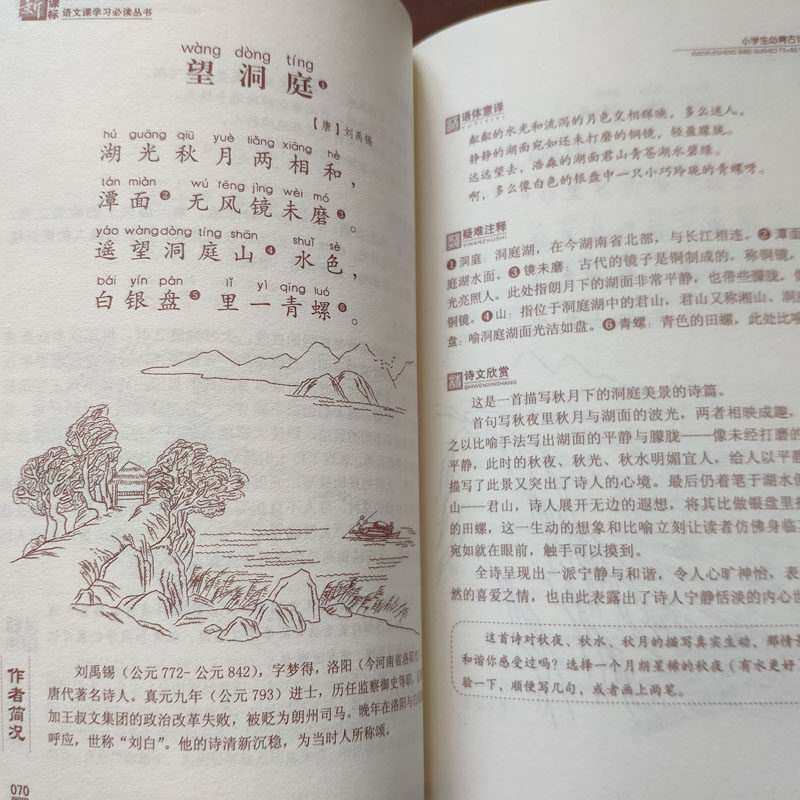 新课标 语文课学习必读丛书
wàng dòng tíng
望洞庭❶
【唐】刘禹锡
hú guāng qiū yuè liǎng xiāng hè
湖光秋月两相和，
tán miàn wú fēng jìng wèi mó
潭面❷无风镜未磨❸。
yáo wàng dòng tíng shān shuǐ sè
遥望洞庭山❹水色，
bái yín pán lǐ yì qīng luó
白银盘❺里一青螺❻。
作者简况
刘禹锡（公元772-公元842），字梦得，洛阳（今河南省洛阳
唐代著名诗人。真元九年（公元793）进士，历任监察御史等职，
加王叔文集团的政治改革失败，被贬为朗州司马。晚年在洛阳与白
呼应，世称“刘白”。他的诗清新沉稳，为当时人所称颂。
070
小学生必背古
语体意译
YUTIYIYI
粼粼的水光和流泻的月色交相辉映，多么迷人，
静静的湖面宛如还未打磨的铜镜，轻盈朦胧。
远远望去，浩淼的湖面君山青苍湖水碧绿。
啊，多么像白色的银盘中一只小巧玲珑的青螺呀。
疑难注释
YINANZHUSHI
❶洞庭：洞庭湖，在今湖南省北部，与长江相连。❷潭面
庭湖水面。❸镜未磨：古代的镜子是铜制成的，称铜镜。
光亮照人。此处指朗月下的湖面非常平静，也带些朦胧，
铜镜。❹山：指位于洞庭湖中的君山，君山又称湘山、洞
盘：喻洞庭湖面光洁如盘。❻青螺：青色的田螺，此处比
诗文欣赏
SHIWENXINSHANG
这是一首描写秋月下的洞庭美景的诗篇。
首句写秋夜里秋月与湖面的波光，两者相映成趣，
之以比喻手法写出湖面的平静与朦胧——像未经打磨的
平静，此时的秋夜、秋光、秋水明媚宜人，给人以平
描写了此景又突出了诗人的心境。最后仍着笔于湖水
山——君山，诗人展开无边的遐想，将其比做银盘里
的田螺，这一生动的想象和比喻立刻让读者仿佛身临
宛如就在眼前，触手可以摸到。
全诗呈现出一派宁静与和谐，令人心旷神怡，表
然的喜爱之情，也由此表露出了诗人宁静恬淡的内心
这首诗对秋夜、秋水、秋月的描写真实生动，那情
和谐你感受过吗？选择一个月朗星稀的秋夜（有水更好
验一下，顺便写几句，或者画上两笔。